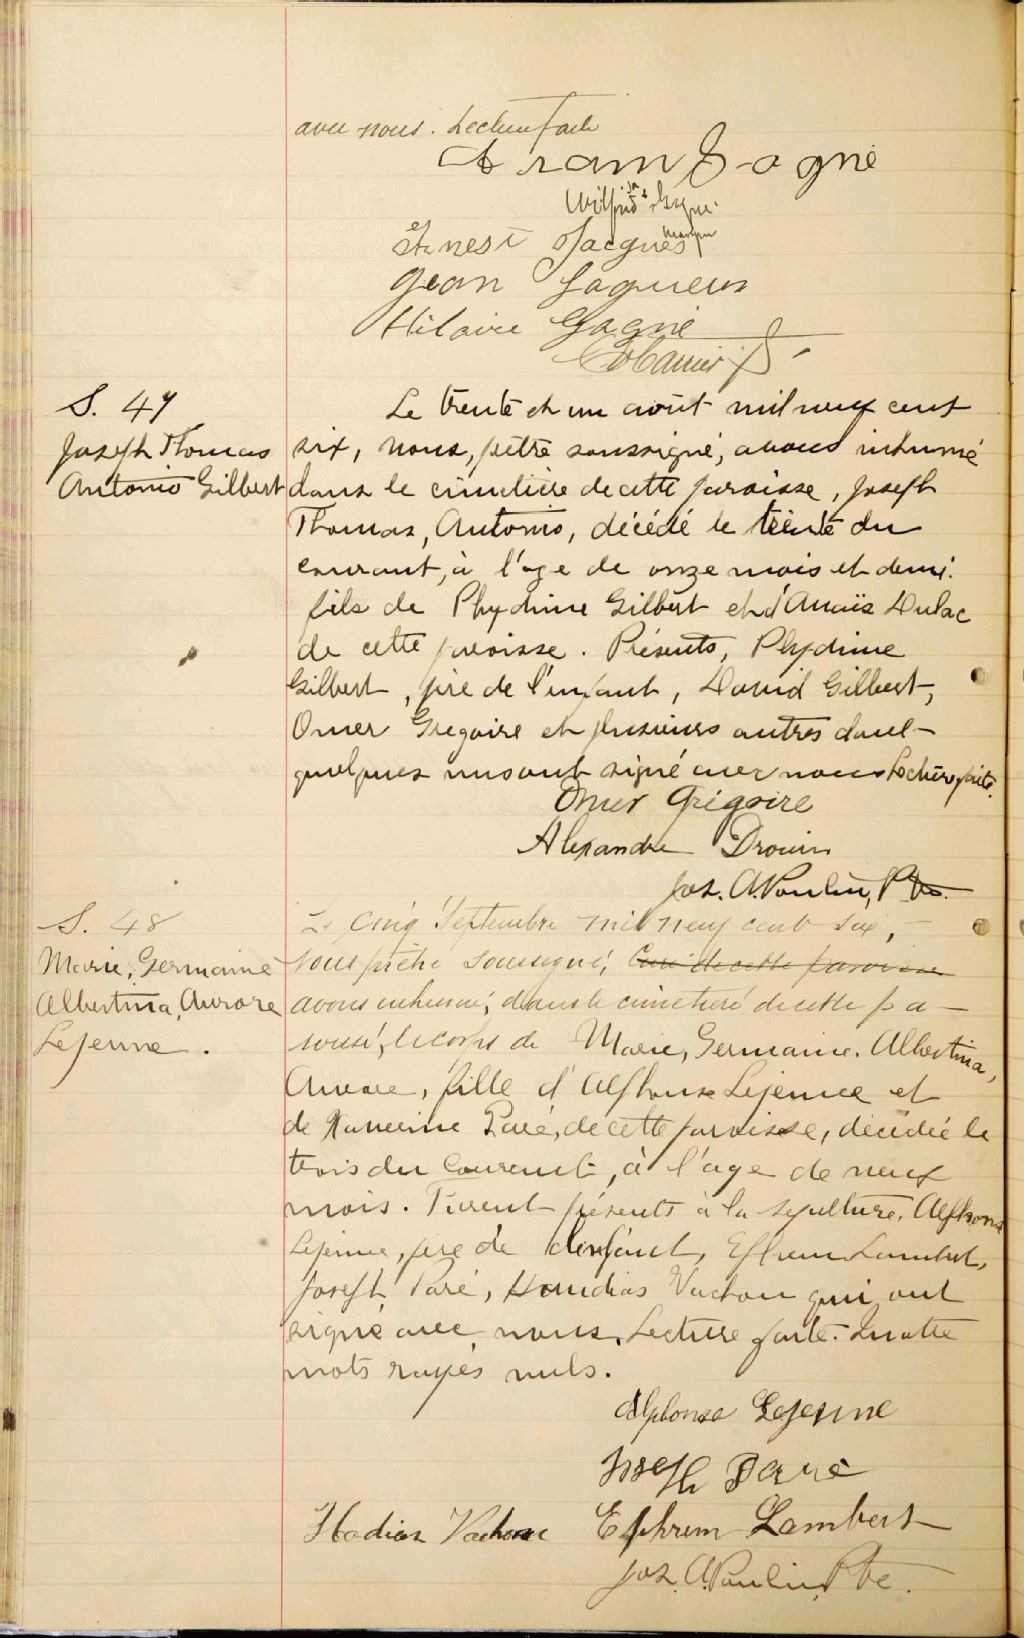 avec nous. Lecture faite
Gagné
Wilfrid
Ernest Jacques
Jean Jaqueus
Hilaire Gagné
S. 47
Joseph Thomas
Antonio Gilbert
Le trente et un août mil neuf cent
six, nous, prêtre soussigné, avons inhumé
dans le cimetière de cette paroisse, Joseph
Thomas, Antonio, décédé le trente du
courant, à l'age de onze mois et demi.
fils de Phydime Gilbert et d'Anaïs Dulac
de cette paroisse. Présents, Phydime
Gilbert, père de l'enfant, David Gilbert,
Omer Gregoire et plusieurs autres dont
quelques uns ont signé avec nous Lecture faite.
Omer Grégoire
Alexandre Drouin
Jos. A. Poulin, Ptre.
S. 48
Marie, Germaine
Albertina, Aurore
Lejeune.
Le cinq Septembre mil neuf cent six,
nous prêtre soussigné, Curé de cette paroisse
avons inhumé, dans le cimetière de cette pa-
roisse, le corps de Marie, Germaine, Albertina,
Aurore, fille d'Alphonse Lejeune et
de Paré, de cette paroisse, décédée le
trois du courant, à l'age de neuf
mois. Furent présents à la sépulture, Alphonse
Lejeune, père de l'enfant, Ephrem Lambert,
Joseph Paré, Vachon qui ont
signé avec nous. Lecture faite. Quatre
mots rayés nuls.
Alphonse Lejeune
Joseph Paré
Hadias Vachon Ephrem Lambert
Jos. A. Poulin, Ptre.